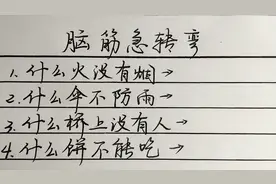 脑筋急转弯
1.什么火没有烟→
2.什么伞不防雨→
3.什么桥上没有人→
4.什么饼不能吃→